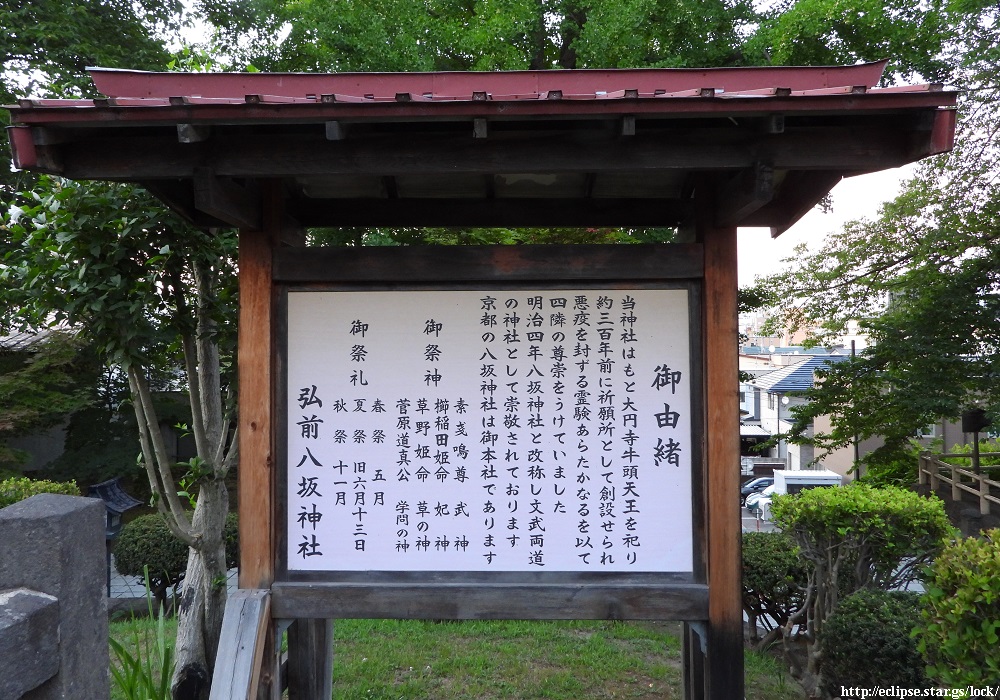 御由緒
当神社はもと大円寺牛頭天王を祀り
約三百年前に祈願所として創設せられ
悪疫を封ずる霊験あらたかなるを以て
四隣の尊崇をうけていました
明治四年八坂神社と改称し文武両道
の神社として崇敬されております
京都の八坂神社は御本社であります
御祭神
素戔鳴尊 武神
櫛稲田姫命 妃神
草野姫命 草の神
菅原道真公 学問の神
御祭礼
春祭 五月
夏祭 旧六月十三日
秋祭 十一月
弘前八坂神社
http://eclipse.star.gs/lock/